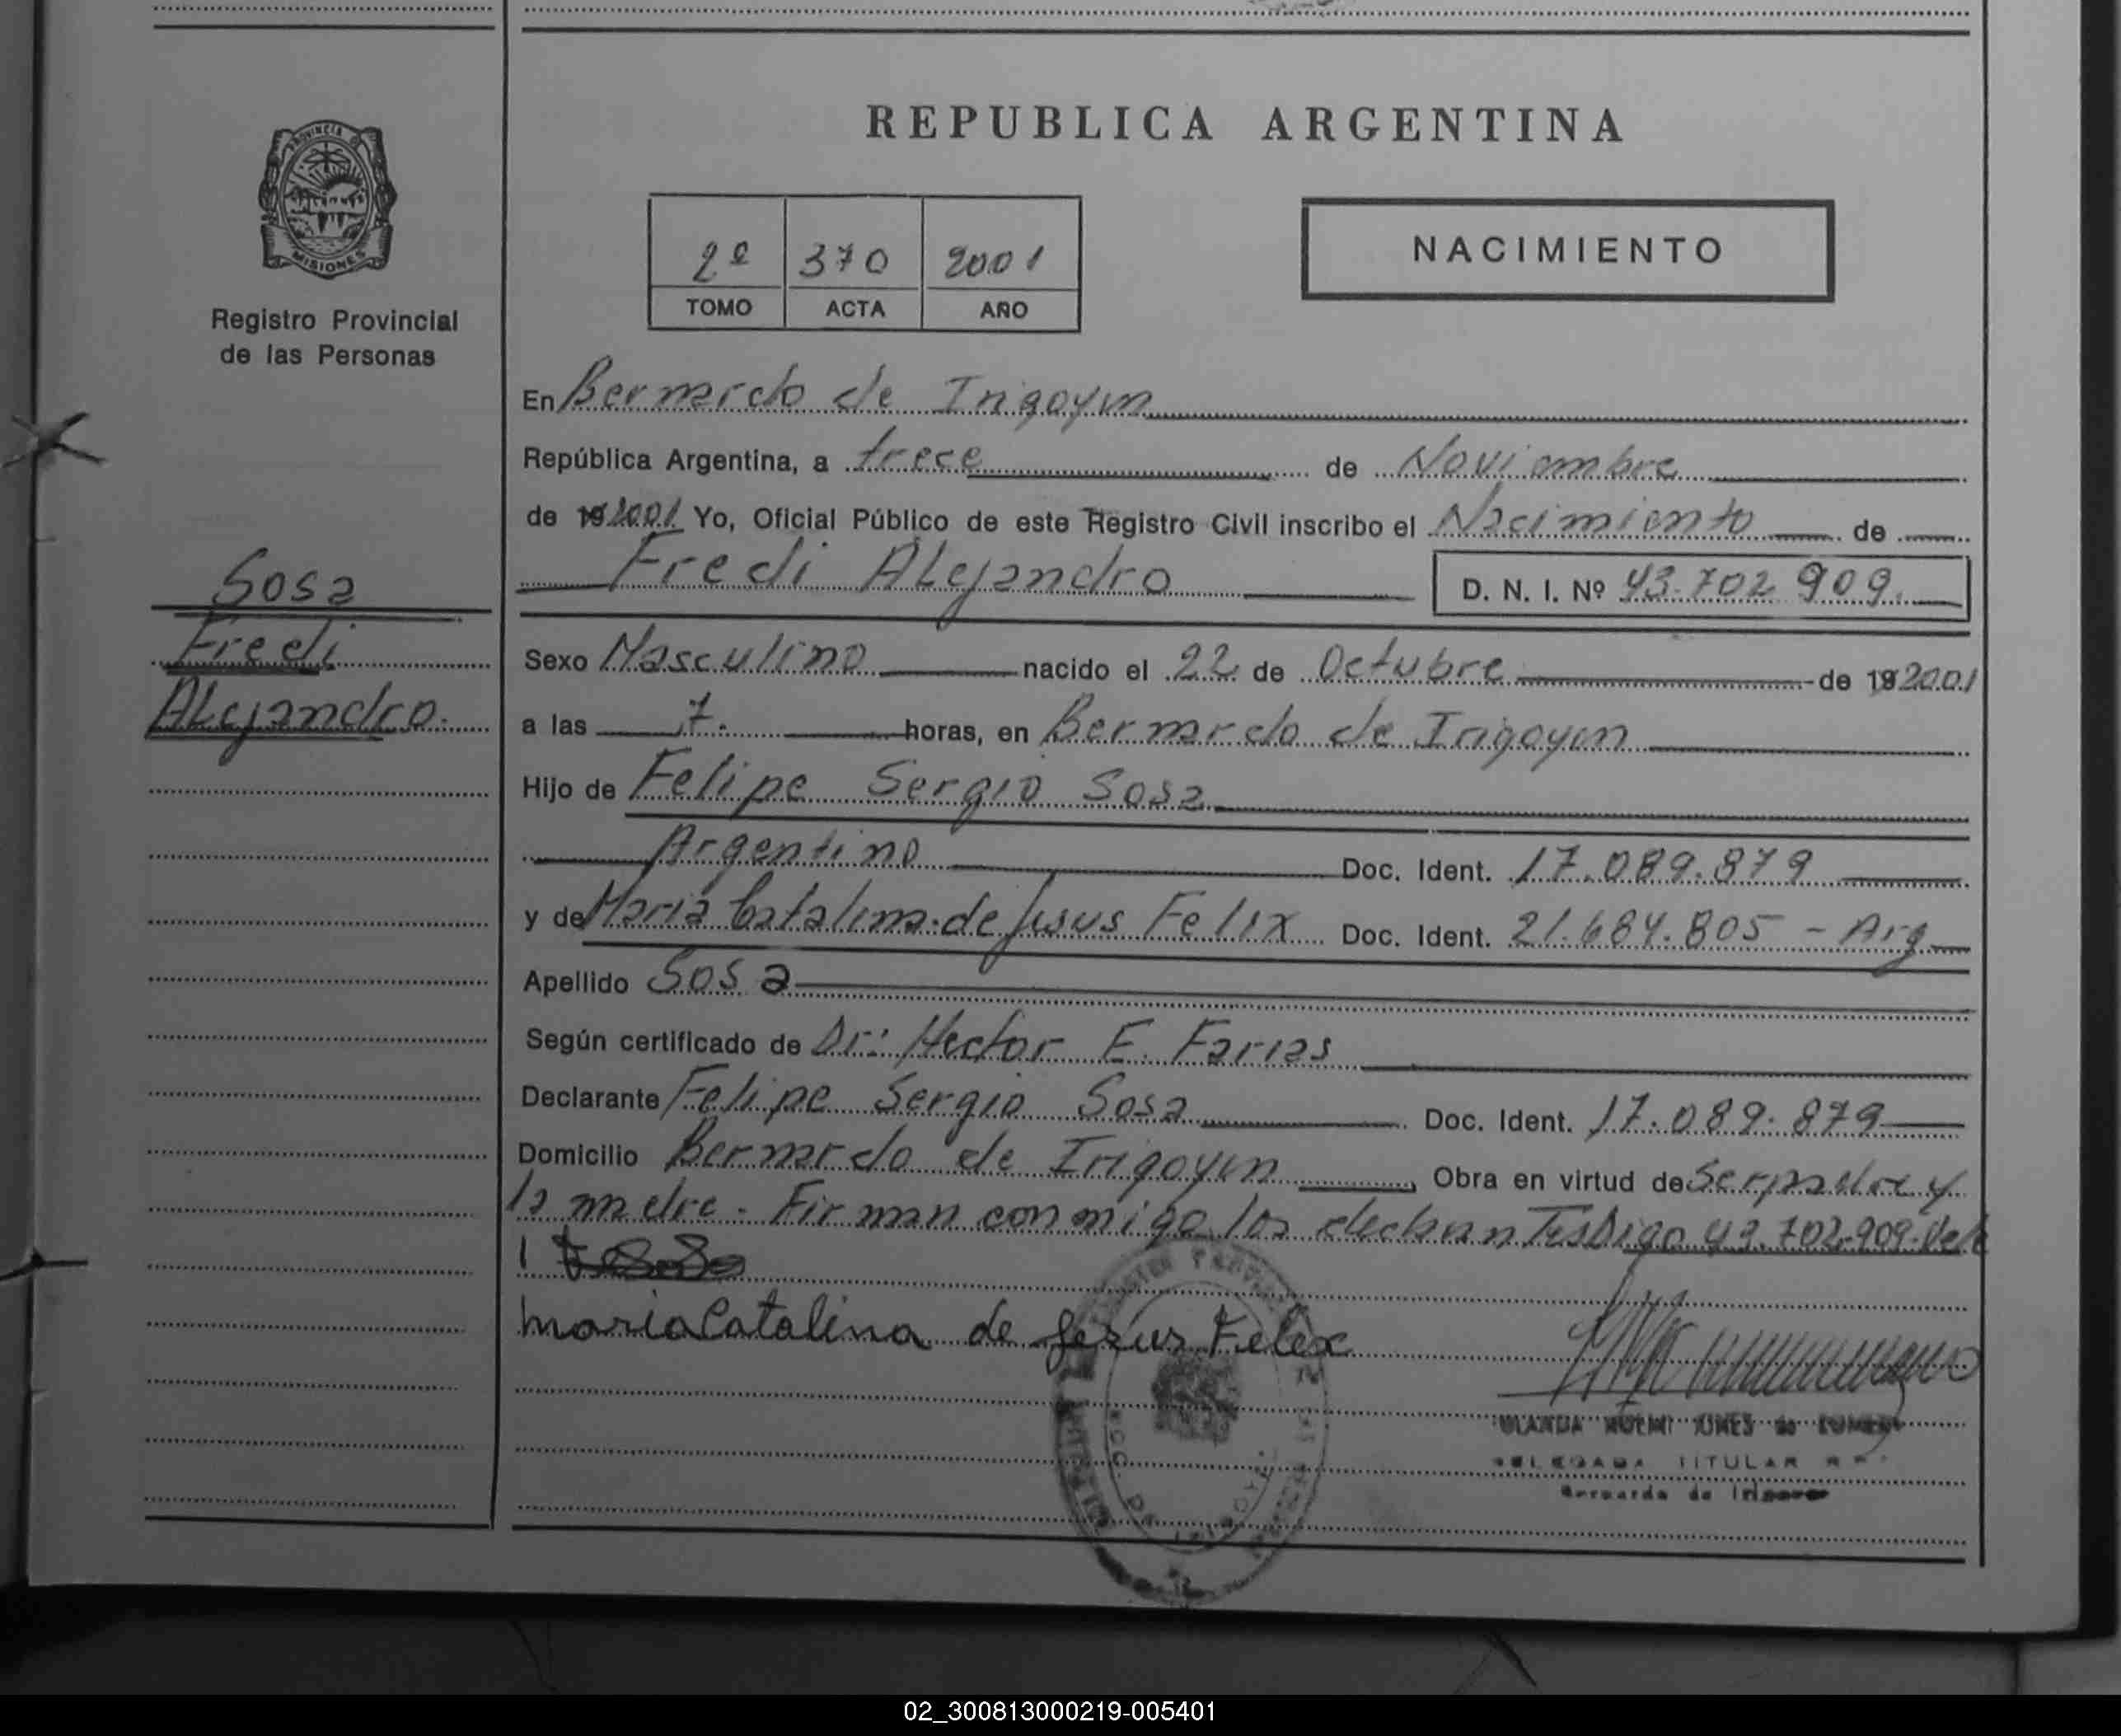 REPUBLICA ARGENTINA
PROVINCIA D
MISIONES
Registro Provincial
de las Personas
2º 370 2001
TOMO ACTA AÑO
NACIMIENTO
En Bernardo de Irigoyen
República Argentina, a trece de Noviembre
de 19 2001 Yo, Oficial Público de este Registro Civil inscribo el Nacimiento de
Fredi Alejandro D. N. I. Nº 43.702 909.
Sosa
Fredi
Alejandro.
Sexo Masculino nacido el 22 de Octubre de 19 2001
a las 7. horas, en Bernardo de Irigoyen
Hijo de Felipe Sergio Sosa
Argentino Doc. Ident. 17.089.879
y de Maria Catalina de Jesus Felix Doc. Ident. 21.684.805 - Arg
Apellido Sosa
Según certificado de Dr: Hector E. Farias
Declarante Felipe Sergio Sosa Doc. Ident. 17.089.879
Domicilio Bernardo de Irigoyen, Obra en virtud de Ser padre y
la madre. Firman conmigo los declarantes Digo 43.702.909. Vale
maria Catalina de Jesus Felix
TITULAR
Bernardo de Irigoyen
02_300813000219-005401